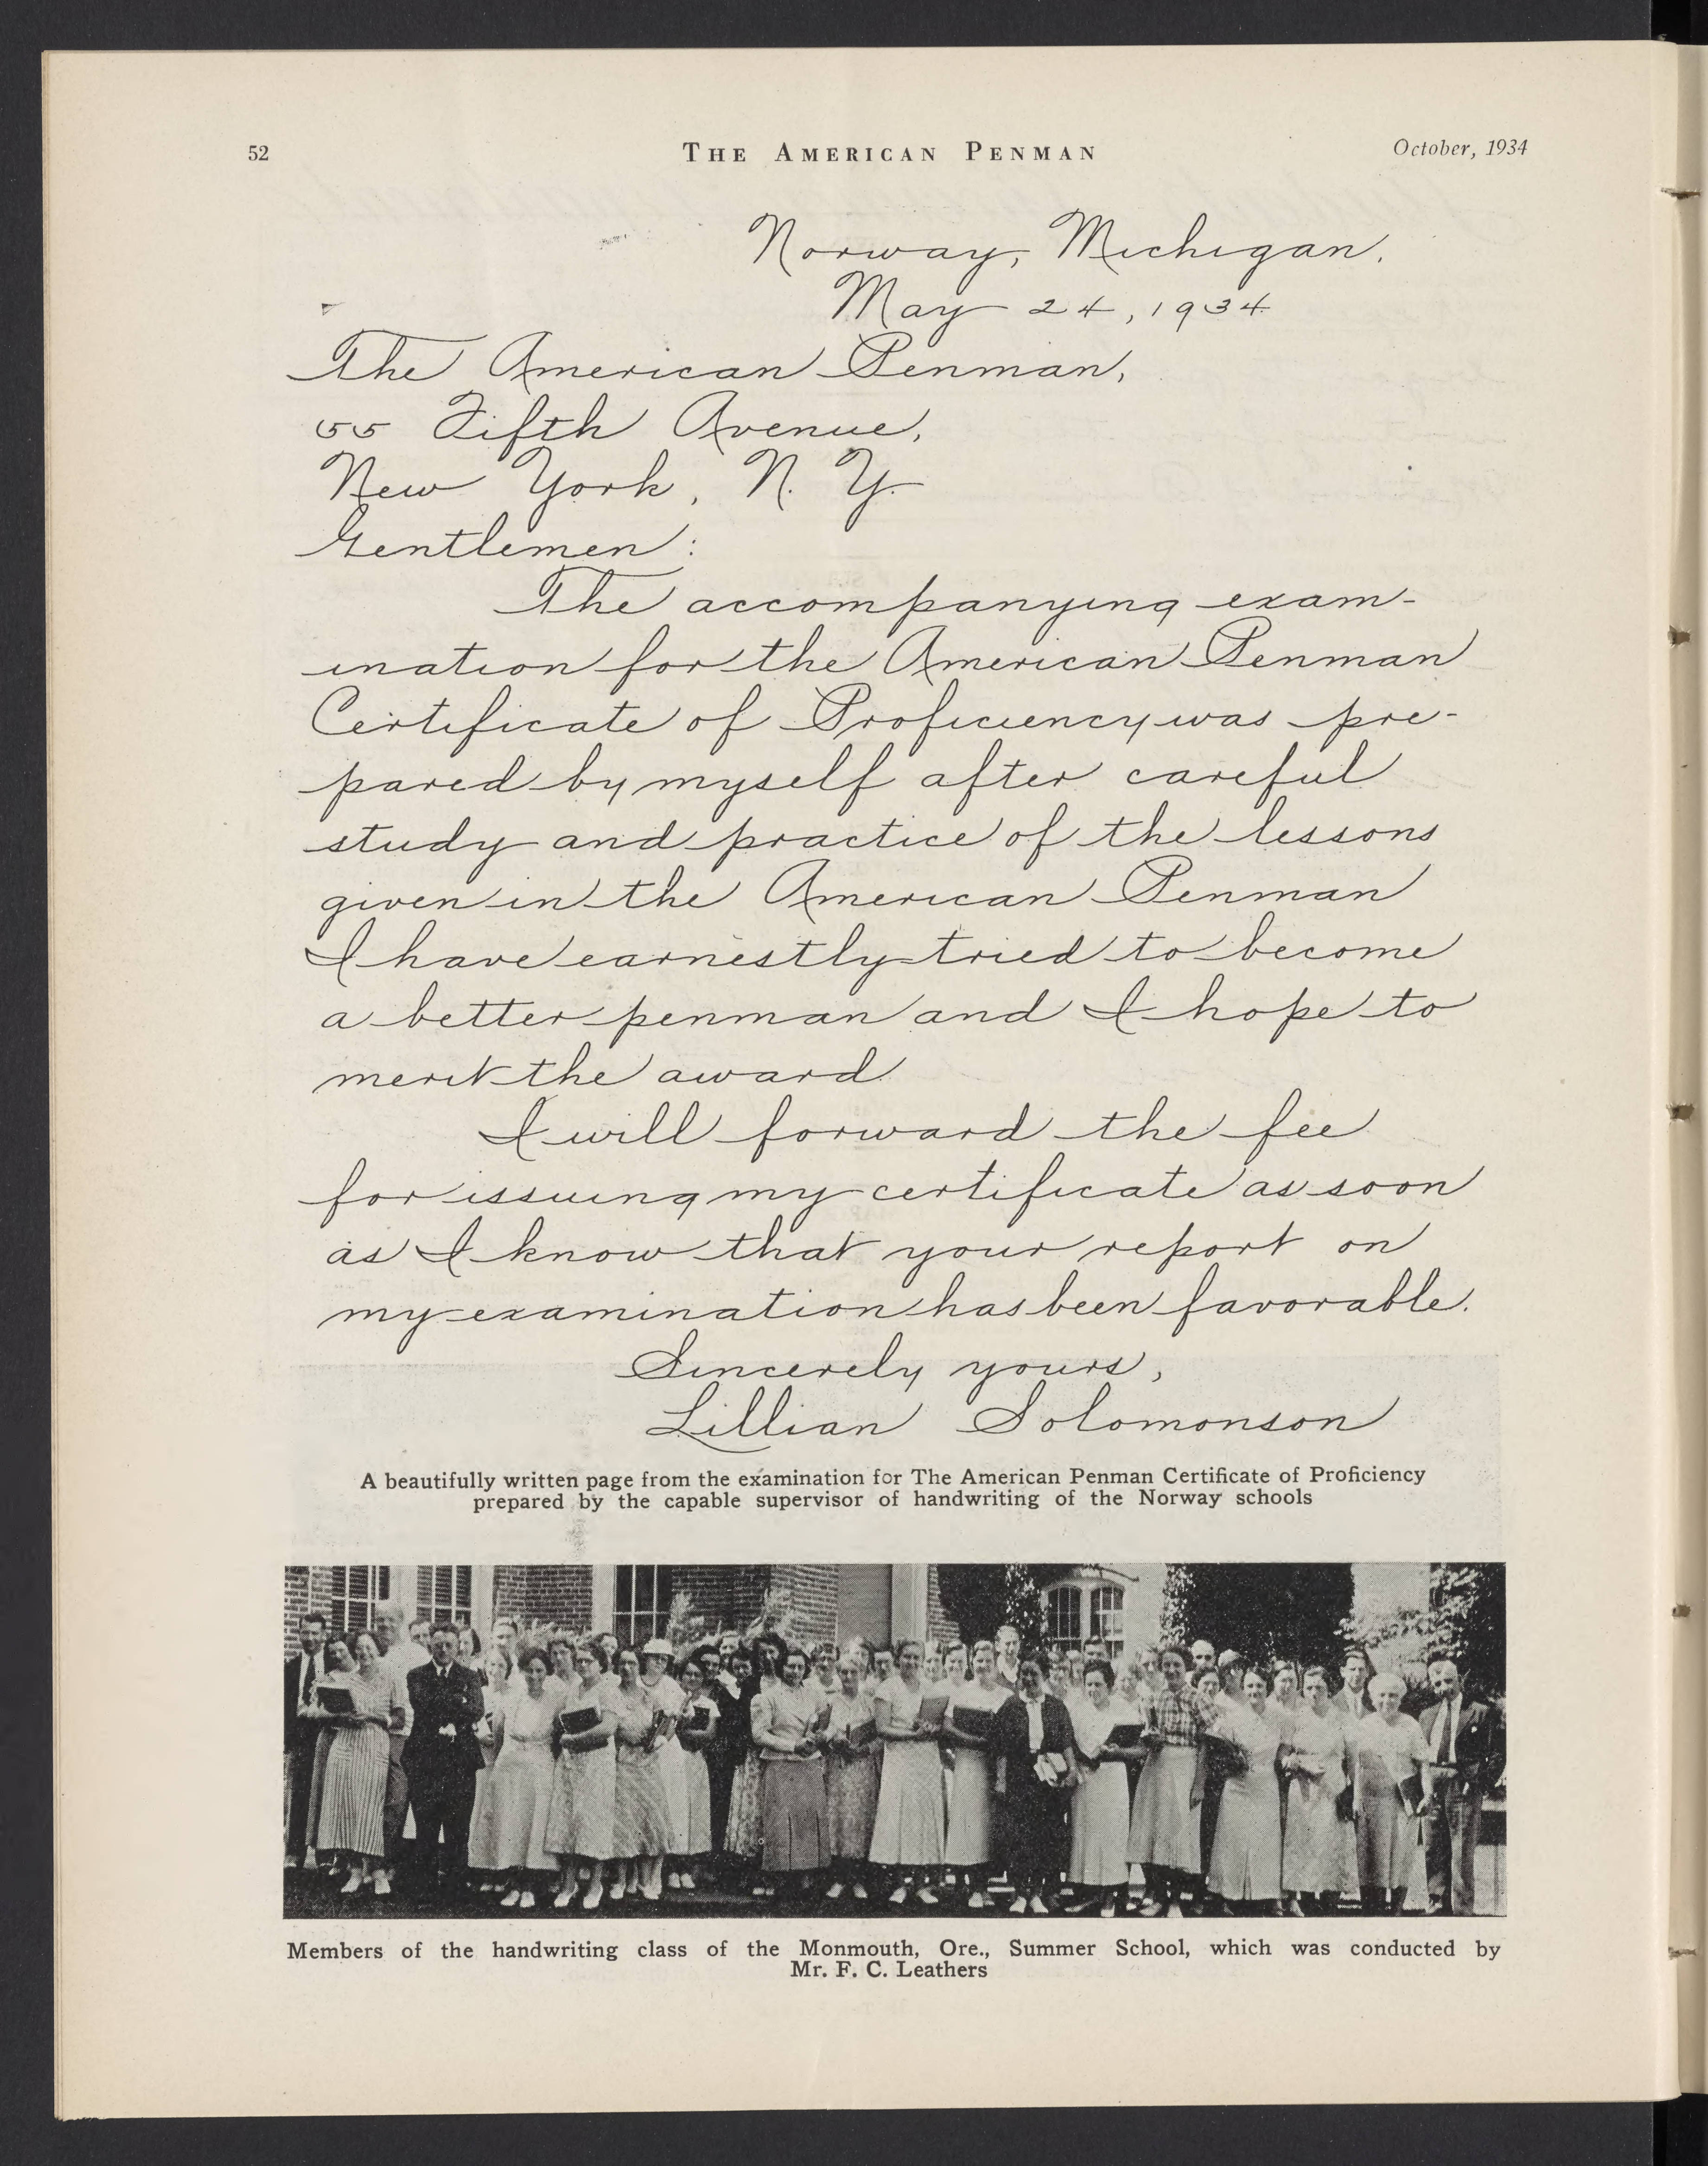 52 THE AMERICAN PENMAN October, 1934
Norway, Michigan.
May 24, 1934
The American Penman,
55 Fifth Avenue,
New York, N. Y.
Gentlemen:
The accompanying exam-
ination for the American Penman
Certificate of Proficiency was pre-
pared by myself after careful
study and practice of the lessons
given in the American Penman
I have earnestly tried to become
a better penman and I hope to
merit the award.
I will forward the fee
for issuing my certificate as soon
as I know that your report on
my examination has been favorable.
Sincerely yours,
Lillian Solomonson
A beautifully written page from the examination for The American Penman Certificate of Proficiency
prepared by the capable supervisor of handwriting of the Norway schools
Members of the handwriting class of the Monmouth, Ore., Summer School, which was conducted by
Mr. F. C. Leathers